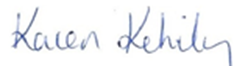 Karen Kehily